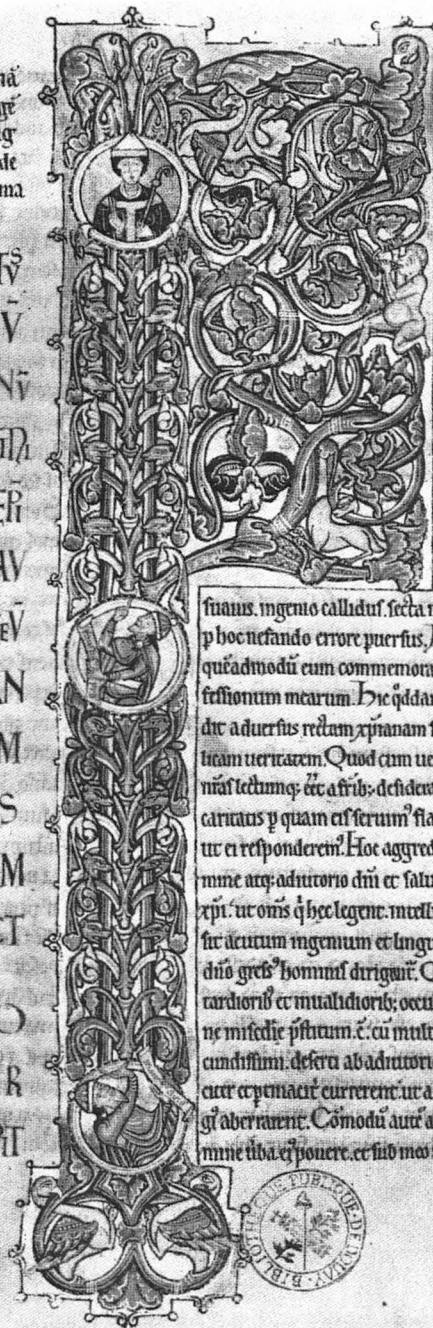 nā
gē
ig
ale
ma
V̄
NV̄
AV
EV̄
AN
M
S
M
CT
O
R
PIT
suauis. ingenio callidus. secta
p hoc nefando errore puersus.
quēadmodū eum commemora
fessionum mearum. Hic qddam
dit aduersus rectam xp̄ianam
licam ueritatem. Quod cum ue
nr̄as lectumq; eēt a frib; desidera
caritatis p quam eis seruim᷒ fla
ut ei responderem᷒. Hoc aggred
mine atq; adiutorio dn̄i et salu
xp̄i. ut om̄s q̇ hec legent. intelli
sit acutum ingenium et lingu
dn̄o gress᷒ hominis dirigunt.
tardiorib; et inualidiorib; occu
ne mis̄c̄die p̄stitum. ē. cū mult
cundissimi. deserti ab adiutori
citer et ptinacit currerent. ut a
aberrarent. Cōmodū autē a
mine uba. exponere. et sub meo
BIBLIOTHEQUE PUBLIQUE DE DOUAY